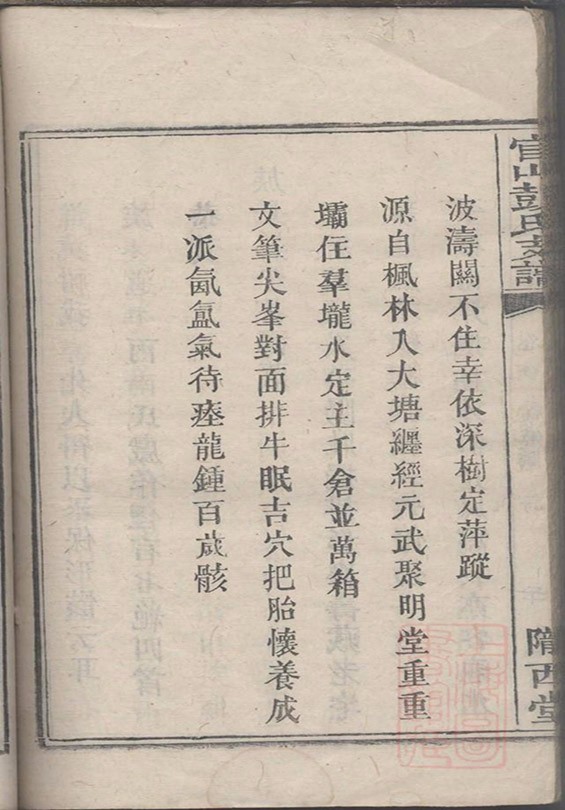 官山彭氏支譜
隴西堂
波濤關不住幸依深樹定萍蹤
源自楓林入大塘纏經元武聚明堂重重
壩任羣壠水定主千倉並萬箱
文筆尖峯對面排牛眠吉穴把胎懷養成
一派氤氳氣待瘞龍鍾百歲骸